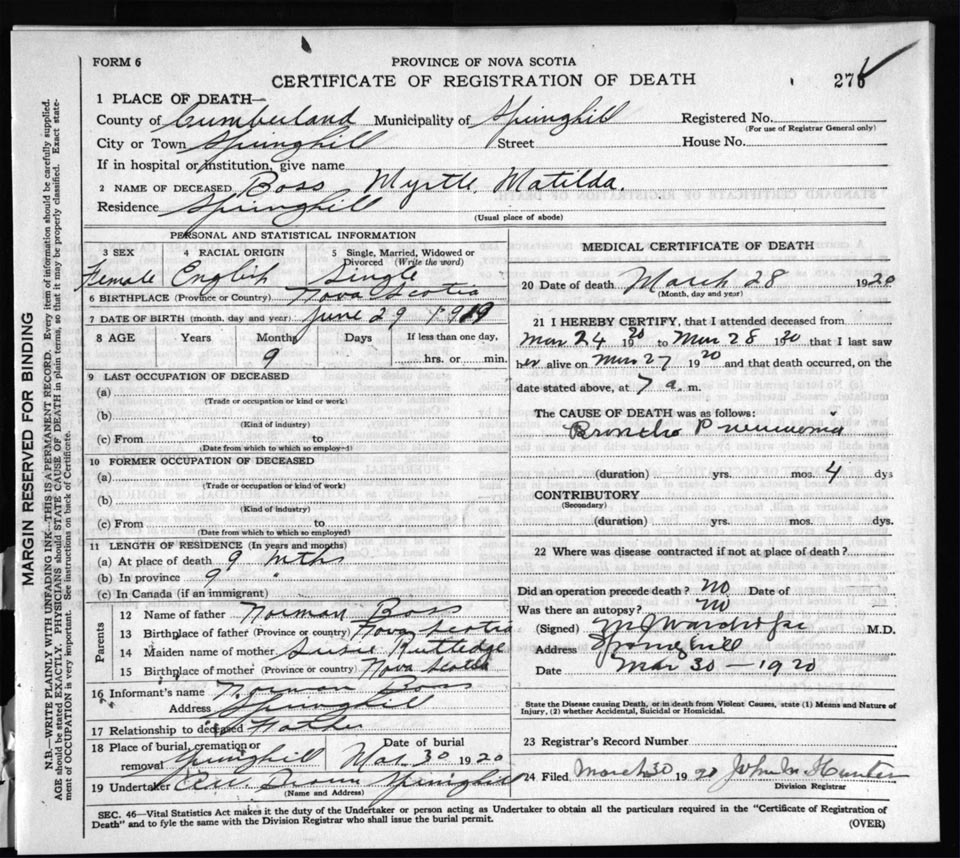 FORM 6
PROVINCE OF NOVA SCOTIA
CERTIFICATE OF REGISTRATION OF DEATH
1 PLACE OF DEATH—
County of Cumberland Municipality of Springhill Registered No.
(For use of Registrar General only)
City or Town Springhill Street House No.
If in hospital or institution, give name
2 NAME OF DECEASED Boss Myrtle Matilda.
Residence Springhill
(Usual place of abode)
PERSONAL AND STATISTICAL INFORMATION
3 SEX 4 RACIAL ORIGIN 5 Single, Married, Widowed or
Divorced (Write the word)
Female English Single
6 BIRTHPLACE (Province or Country) Nova Scotia
7 DATE OF BIRTH (month, day and year) June 29 1919
8 AGE Years Months Days If less than one day,
9 hrs. or min.
9 LAST OCCUPATION OF DECEASED
(a)
(Trade or occupation or kind or work)
(b)
(Kind of industry)
(c) From to
(Date from which to which so employed)
10 FORMER OCCUPATION OF DECEASED
(a)
(Trade or occupation or kind of work)
(b)
(Kind of industry)
(c) From to
(Date from which to which so employed)
11 LENGTH OF RESIDENCE (In years and months)
(a) At place of death 9 mths
(b) In province 9 "
(c) In Canada (if an immigrant)
Parents
12 Name of father Norman Boss
13 Birthplace of father (Province or country) Nova Scotia
14 Maiden name of mother Susie Rutledge
15 Birthplace of mother (Province or country) Nova Scotia
16 Informant's name Norman Boss
Address Springhill
17 Relationship to deceased Father
18 Place of burial, cremation or Date of burial
removal Springhill Mar. 30 1920
19 Undertaker Brown Springhill
(Name and Address)
MEDICAL CERTIFICATE OF DEATH
20 Date of death March 28 1920
(Month, day and year)
21 I HEREBY CERTIFY, that I attended deceased from
Mar 24 1920 to Mar 28 1920 that I last saw
her alive on Mar 27 1920 and that death occurred, on the
date stated above, at 7 a. m.
The CAUSE OF DEATH was as follows:
Broncho Pneumonia
(duration) yrs. mos. 4 dys
CONTRIBUTORY
(Secondary)
(duration) yrs. mos. dys.
22 Where was disease contracted if not at place of death?
Did an operation precede death? no Date of
Was there an autopsy? no
(Signed) M.D.
Address Springhill
Date Mar 30 — 1920
State the Disease causing Death, or in death from Violent Causes, state (1) Means and Nature of
Injury, (2) whether Accidental, Suicidal or Homicidal.
23 Registrar's Record Number
24 Filed March 30 1920 John M Hunter
Division Registrar
SEC. 46—Vital Statistics Act makes it the duty of the Undertaker or person acting as Undertaker to obtain all the particulars required in the "Certificate of Registration of
Death" and to fyle the same with the Division Registrar who shall issue the burial permit.
(OVER)
MARGIN RESERVED FOR BINDING
N.B.—WRITE PLAINLY WITH UNFADING INK—THIS IS A PERMANENT RECORD. Every item of information should be carefully supplied.
AGE should be stated EXACTLY. PHYSICIANS should STATE CAUSE OF DEATH in plain terms, so that it may be properly classified. Exact state-
ment of OCCUPATION is very important. See instructions on back of Certificate.